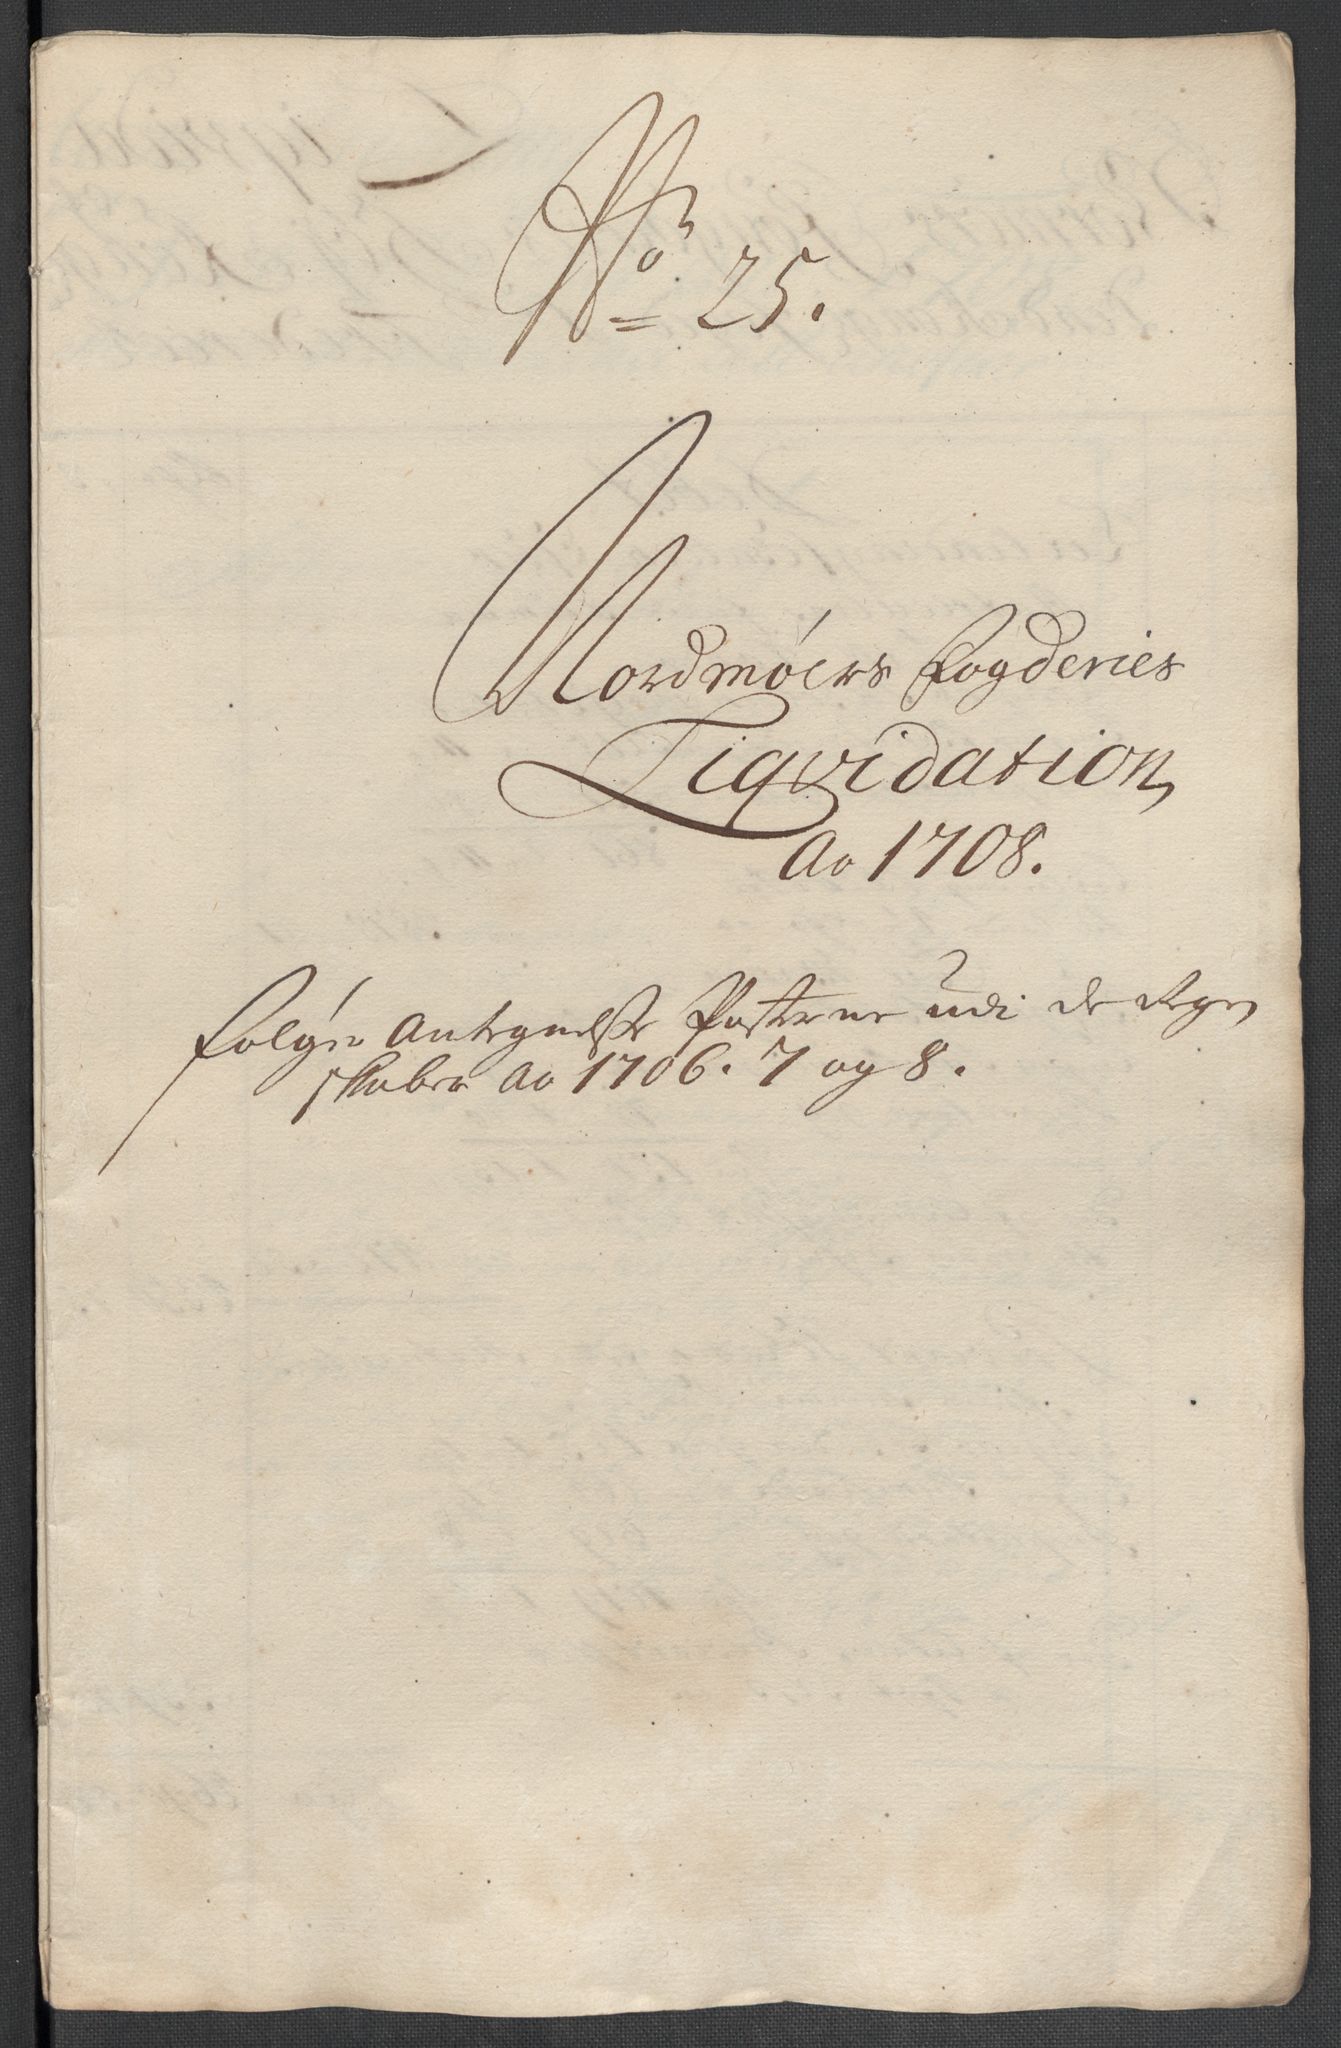 No 25.
Nordmöers Fogderies
Liqvidation,
Ao 1708.
følger Antegnelse Posterne udi de Regen
skaber Ao 1706. 7 og 8.